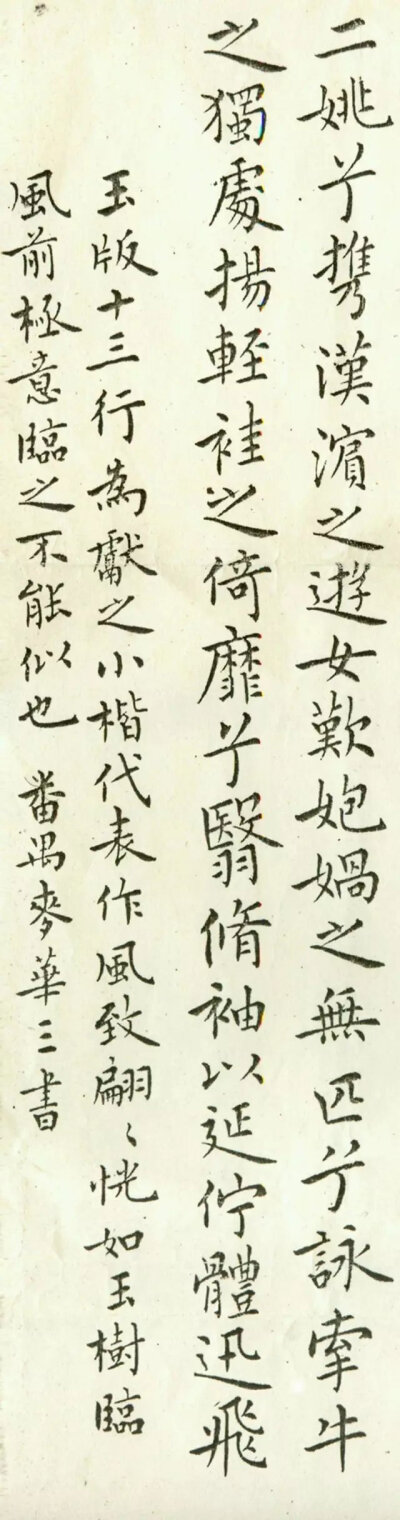 二姚兮携漢濵之遊女歎㚿媧之無匹兮詠牽牛
之獨處揚輕袿之倚靡兮翳脩袖以延佇體迅飛
玉版十三行為獻之小楷代表作風致翩〻恍如玉樹臨
風前極意臨之不能似也 番禺麥華三書